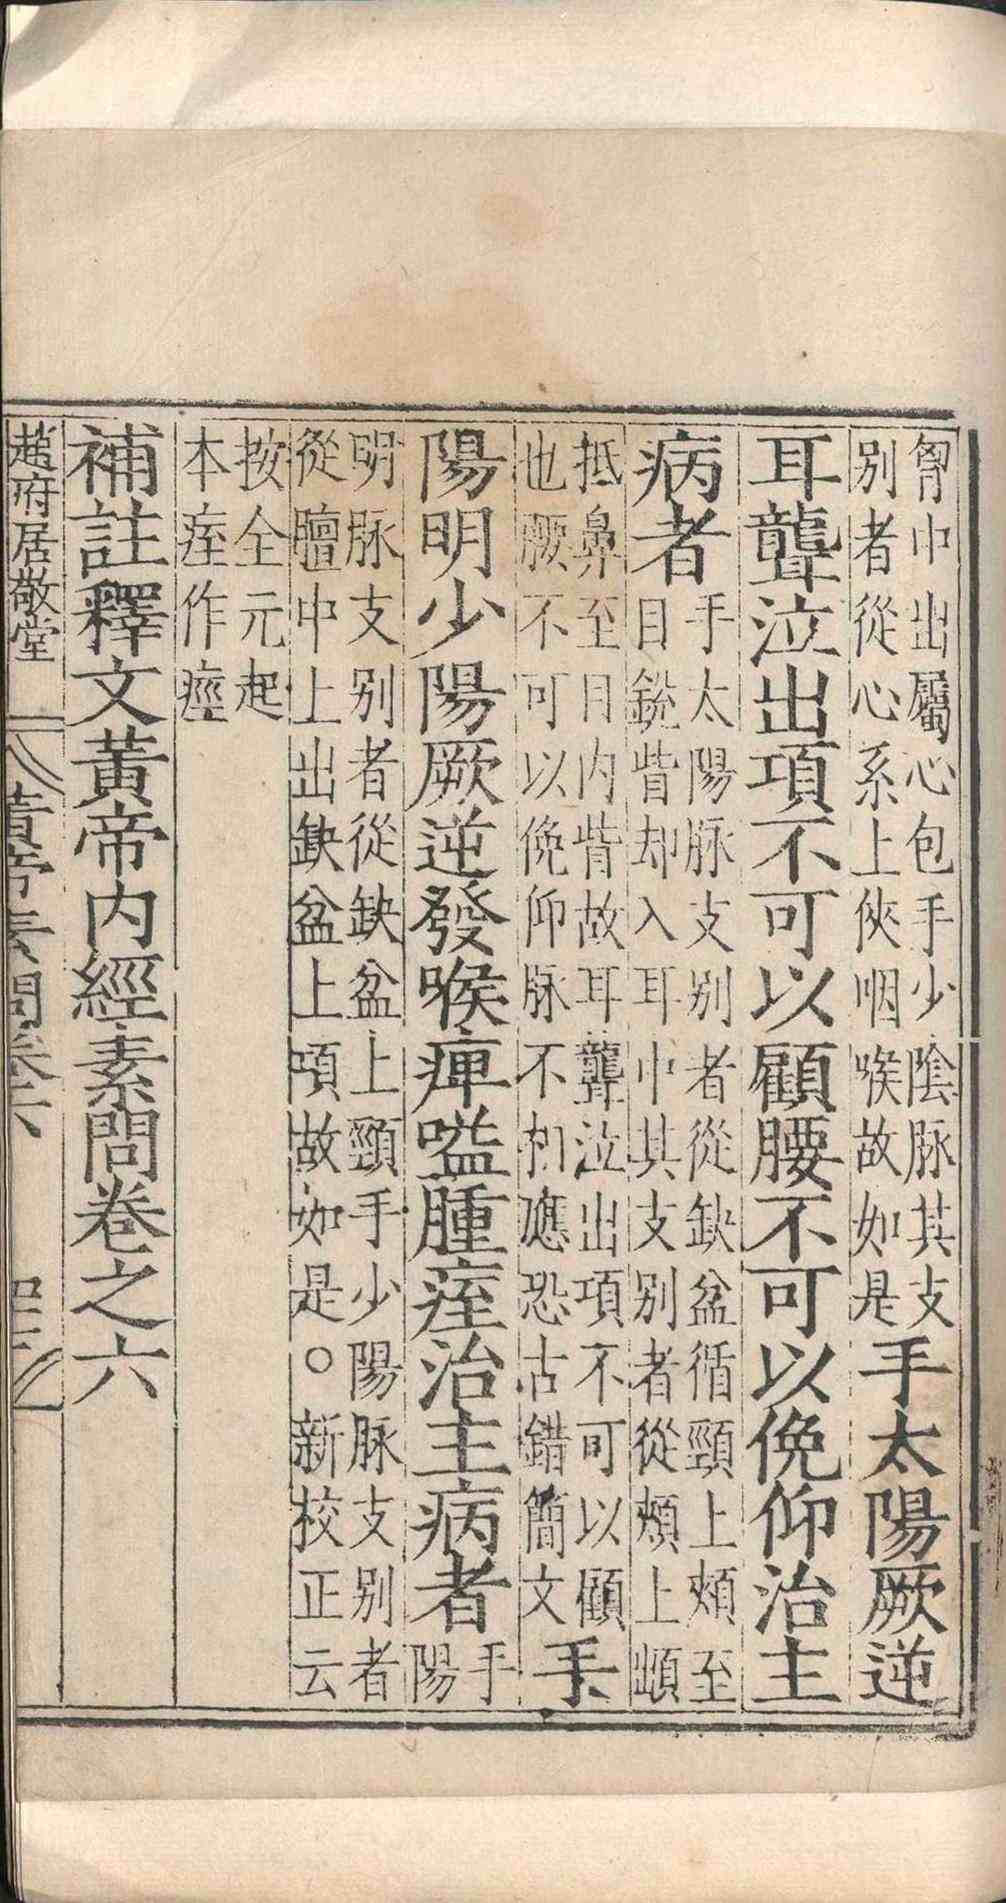 胷中出屬心包手少陰脉其支
别者從心系上俠咽喉故如是手太陽厥逆
耳聾泣出項不可以顧腰不可以俛仰治主
病者手太陽脉支别者從缺盆循頸上頰至
目銳眥却入耳中其支别者從頰上䪼
抵鼻至目内眥故耳聾泣出項不可以顧
也厥不可以俛仰脉不相應恐古錯簡文手
陽明少陽厥逆發喉痺嗌腫痓治主病者手
陽
明脉支别者從缺盆上頸手少陽脉支别者
從膻中上出缺盆上項故如是○新校正云
按全元起
本痓作痙
補註釋文黃帝内經素問卷之六
趙府居敬堂
黃帝素問卷六